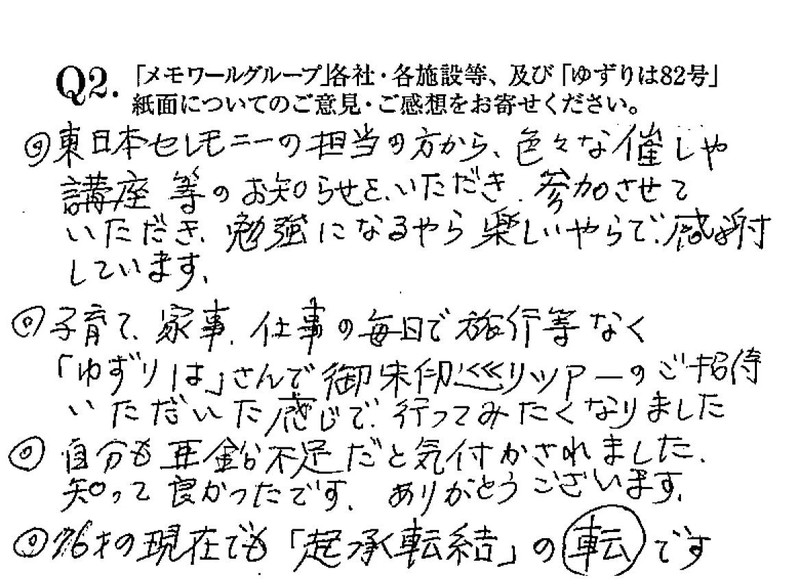 Q2. 「メモワールグループ」各社・各施設等、及び「ゆずりは82号」
紙面についてのご意見・ご感想をお寄せください。
◎東日本セレモニーの担当の方から、色々な催しや
講座等のお知らせを、いただき、参加させて
いただき、勉強になるやら楽しいやらで、感謝
しています。
◎子育て、家事、仕事の毎日で旅行等なく
「ゆずりは」さんで御朱印巡りツアーのご招待
いただいた感じで、行ってみたくなりました
◎自分も亜鉛不足だと気付かされました、
知って良かったです。ありがとうございます。
◎76才の現在でも「起承転結」の転です